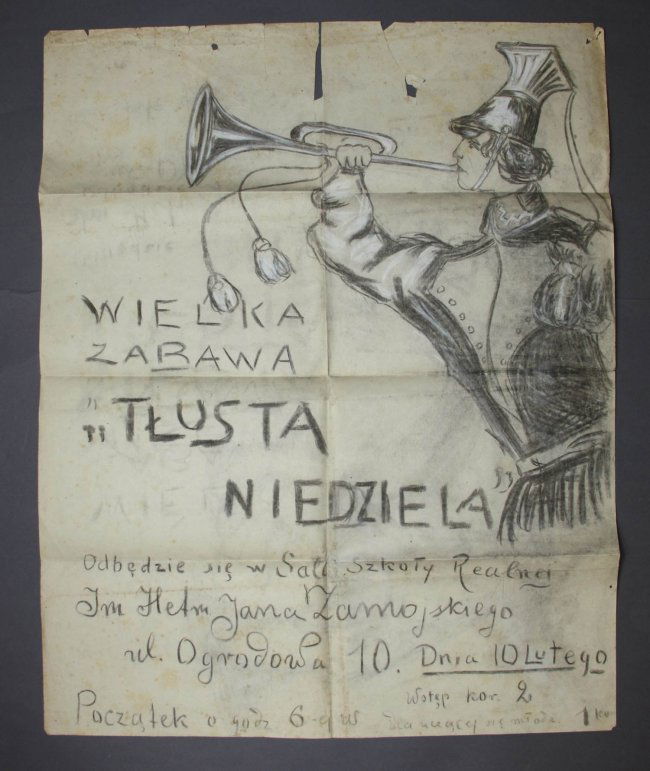 WIELKA
ZABAWA
„TŁUSTA
NIEDZIELA"
Odbędzie się w Sali Szkoły Realnej
Im Hetm Jana Zamojskiego
ul. Ogrodowa 10. Dnia 10 Lutego
Wstęp kor. 2
Początek o godz 6-ej W dla uczącej się młodz. 1 kor